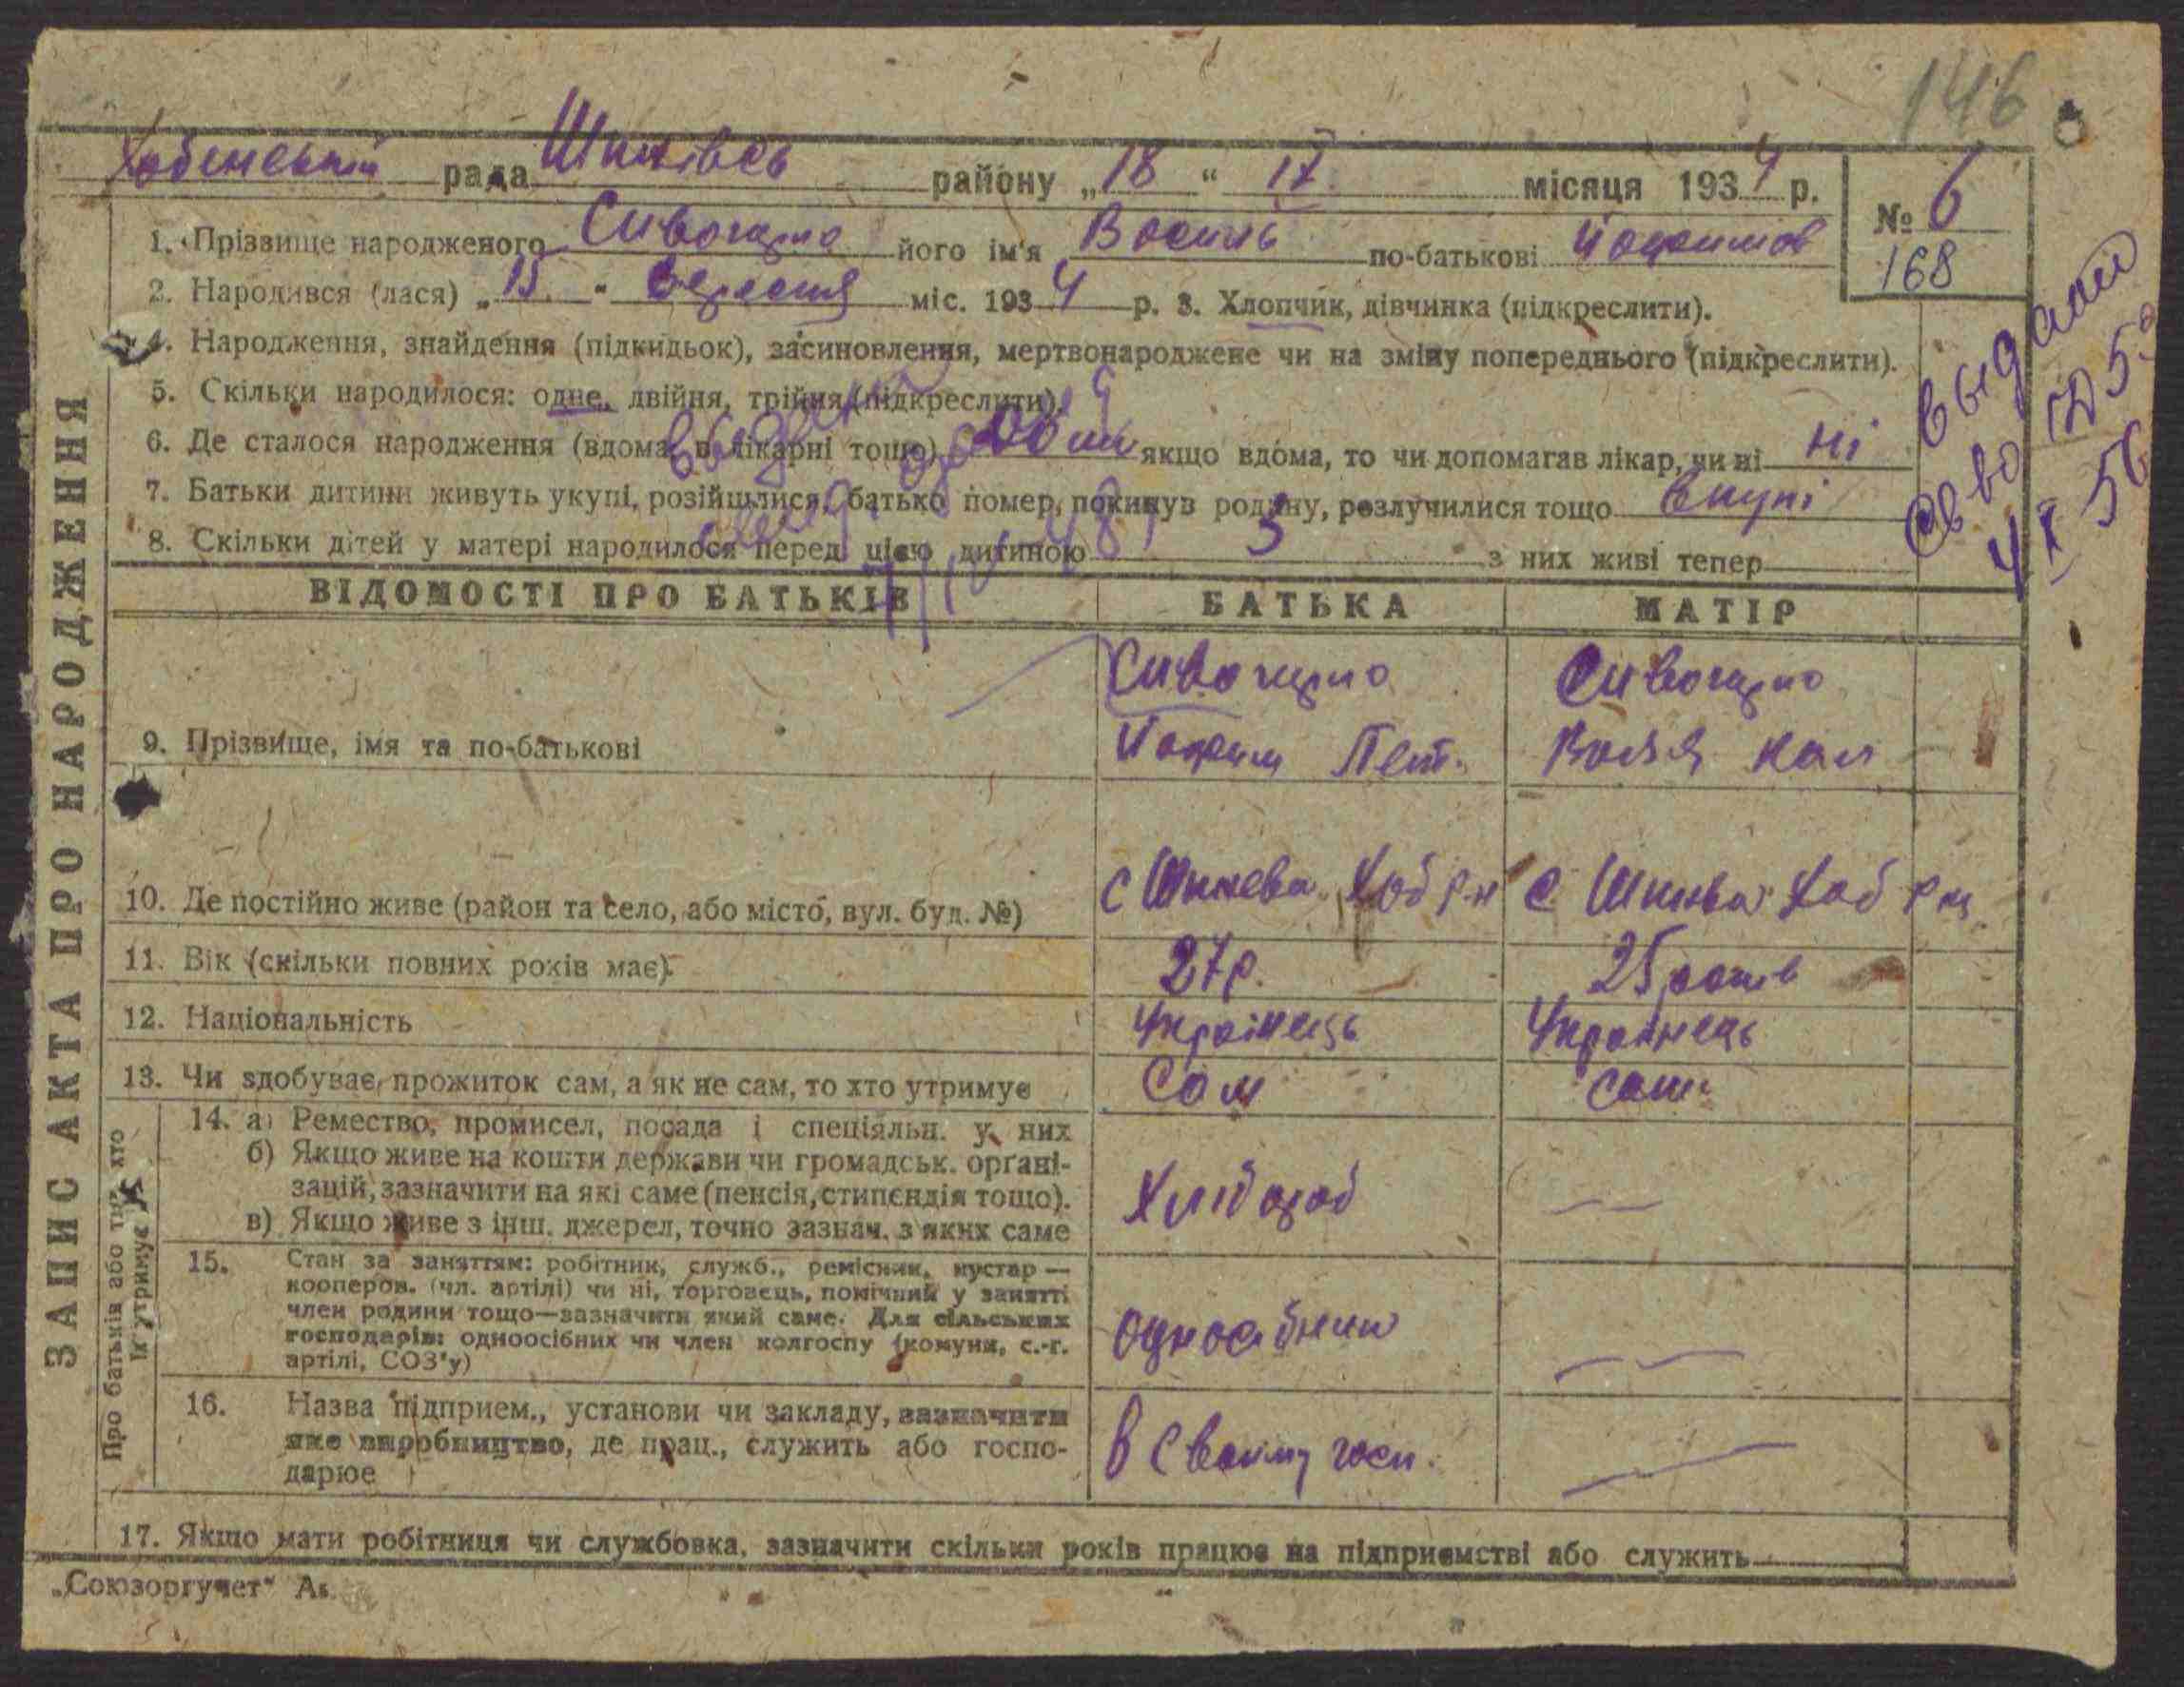 146
рада Шпилівсь району „18“ ІХ місяця 1934 р.
№ 6
1. Прізвище народженого його ім'я Василь по-батькові
168
2. Народився (лася) „15“ вересня міс. 1934 р. 3. Хлопчик, дівчинка (підкреслити).
4. Народження, знайдення (підкидьок), засиновлення, мертвонароджене чи на зміну попереднього (підкреслити).
5. Скільки народилося: одне, двійня, трійня (підкреслити).
6. Де сталося народження (вдома, в лікарні тощо) дома якщо вдома, то чи допомагав лікар, чи ні ні
7. Батьки дитини живуть укупі, розійшлися, батько помер, покинув родину, розлучилися тощо вкупі
8. Скільки дітей у матері народилося перед цією дитиною 3 з них живі тепер
ВІДОМОСТІ ПРО БАТЬКІВ БАТЬКА МАТІР
9. Прізвище, імя та по-батькові
10. Де постійно живе (район та село, або місто, вул. буд. №)
11. Вік (скільки повних років має). 27р. 25 років
12. Національність Українець Українець
13. Чи здобуває прожиток сам, а як не сам, то хто утримує Сам сама
14. а) Ремество, промисел, посада і спеціяльн. у них
б) Якщо живе на кошти держави чи громадськ. органі-
зацій, зазначити на які саме (пенсія, стипендія тощо).
в) Якщо живе з інш. джерел, точно зазнач. з яких саме
Хлібороб
15. Стан за заняттям: робітник, служб., ремісник, кустар —
кооперов. (чл. артілі) чи ні, торговець, помічний у занятті
член родини тощо—зазначити який саме. Для сільських
господарів: одноосібних чи член колгоспу (комуни, с.-г.
артілі, СОЗ'у)
одноосібник
16. Назва підприєм., установи чи закладу, зазначити
яке виробництво, де прац., служить або госпо-
дарює
В своїму госп.
17. Якщо мати робітниця чи службовка, зазначити скільки років працює на підприємстві або служить
„Союзоргучет“
ЗАПИС АКТА ПРО НАРОДЖЕННЯ
Про батьків або тих, хто
їх утримує
выдано
4 X 56